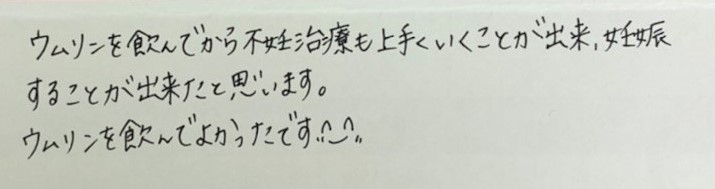 ウムリンを飲んでから不妊治療も上手くいくことが出来、妊娠
することが出来たと思います。
ウムリンを飲んでよかったです!!^‿^!!